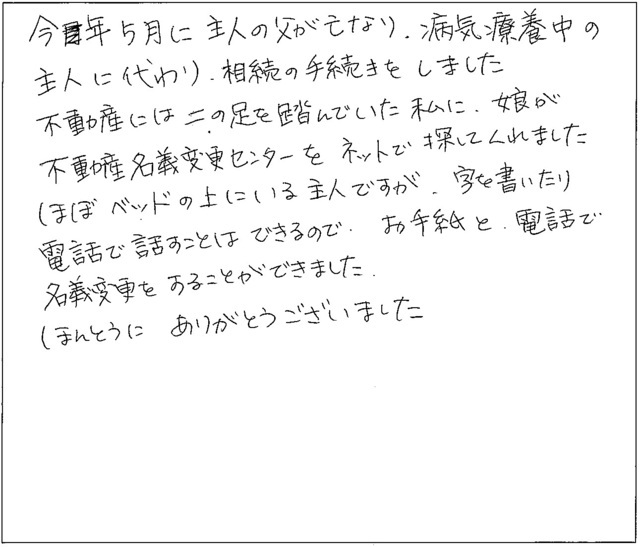 今年5月に主人の父が亡なり、病気療養中の
主人に代わり、相続の手続きをしました
不動産には二の足を踏んでいた私に、娘が
不動産名義変更センターをネットで探してくれました
ほぼベッドの上にいる主人ですが、字を書いたり
電話で話すことはできるので、お手紙と、電話で
名義変更をすることができました.
ほんとうに ありがとうございました